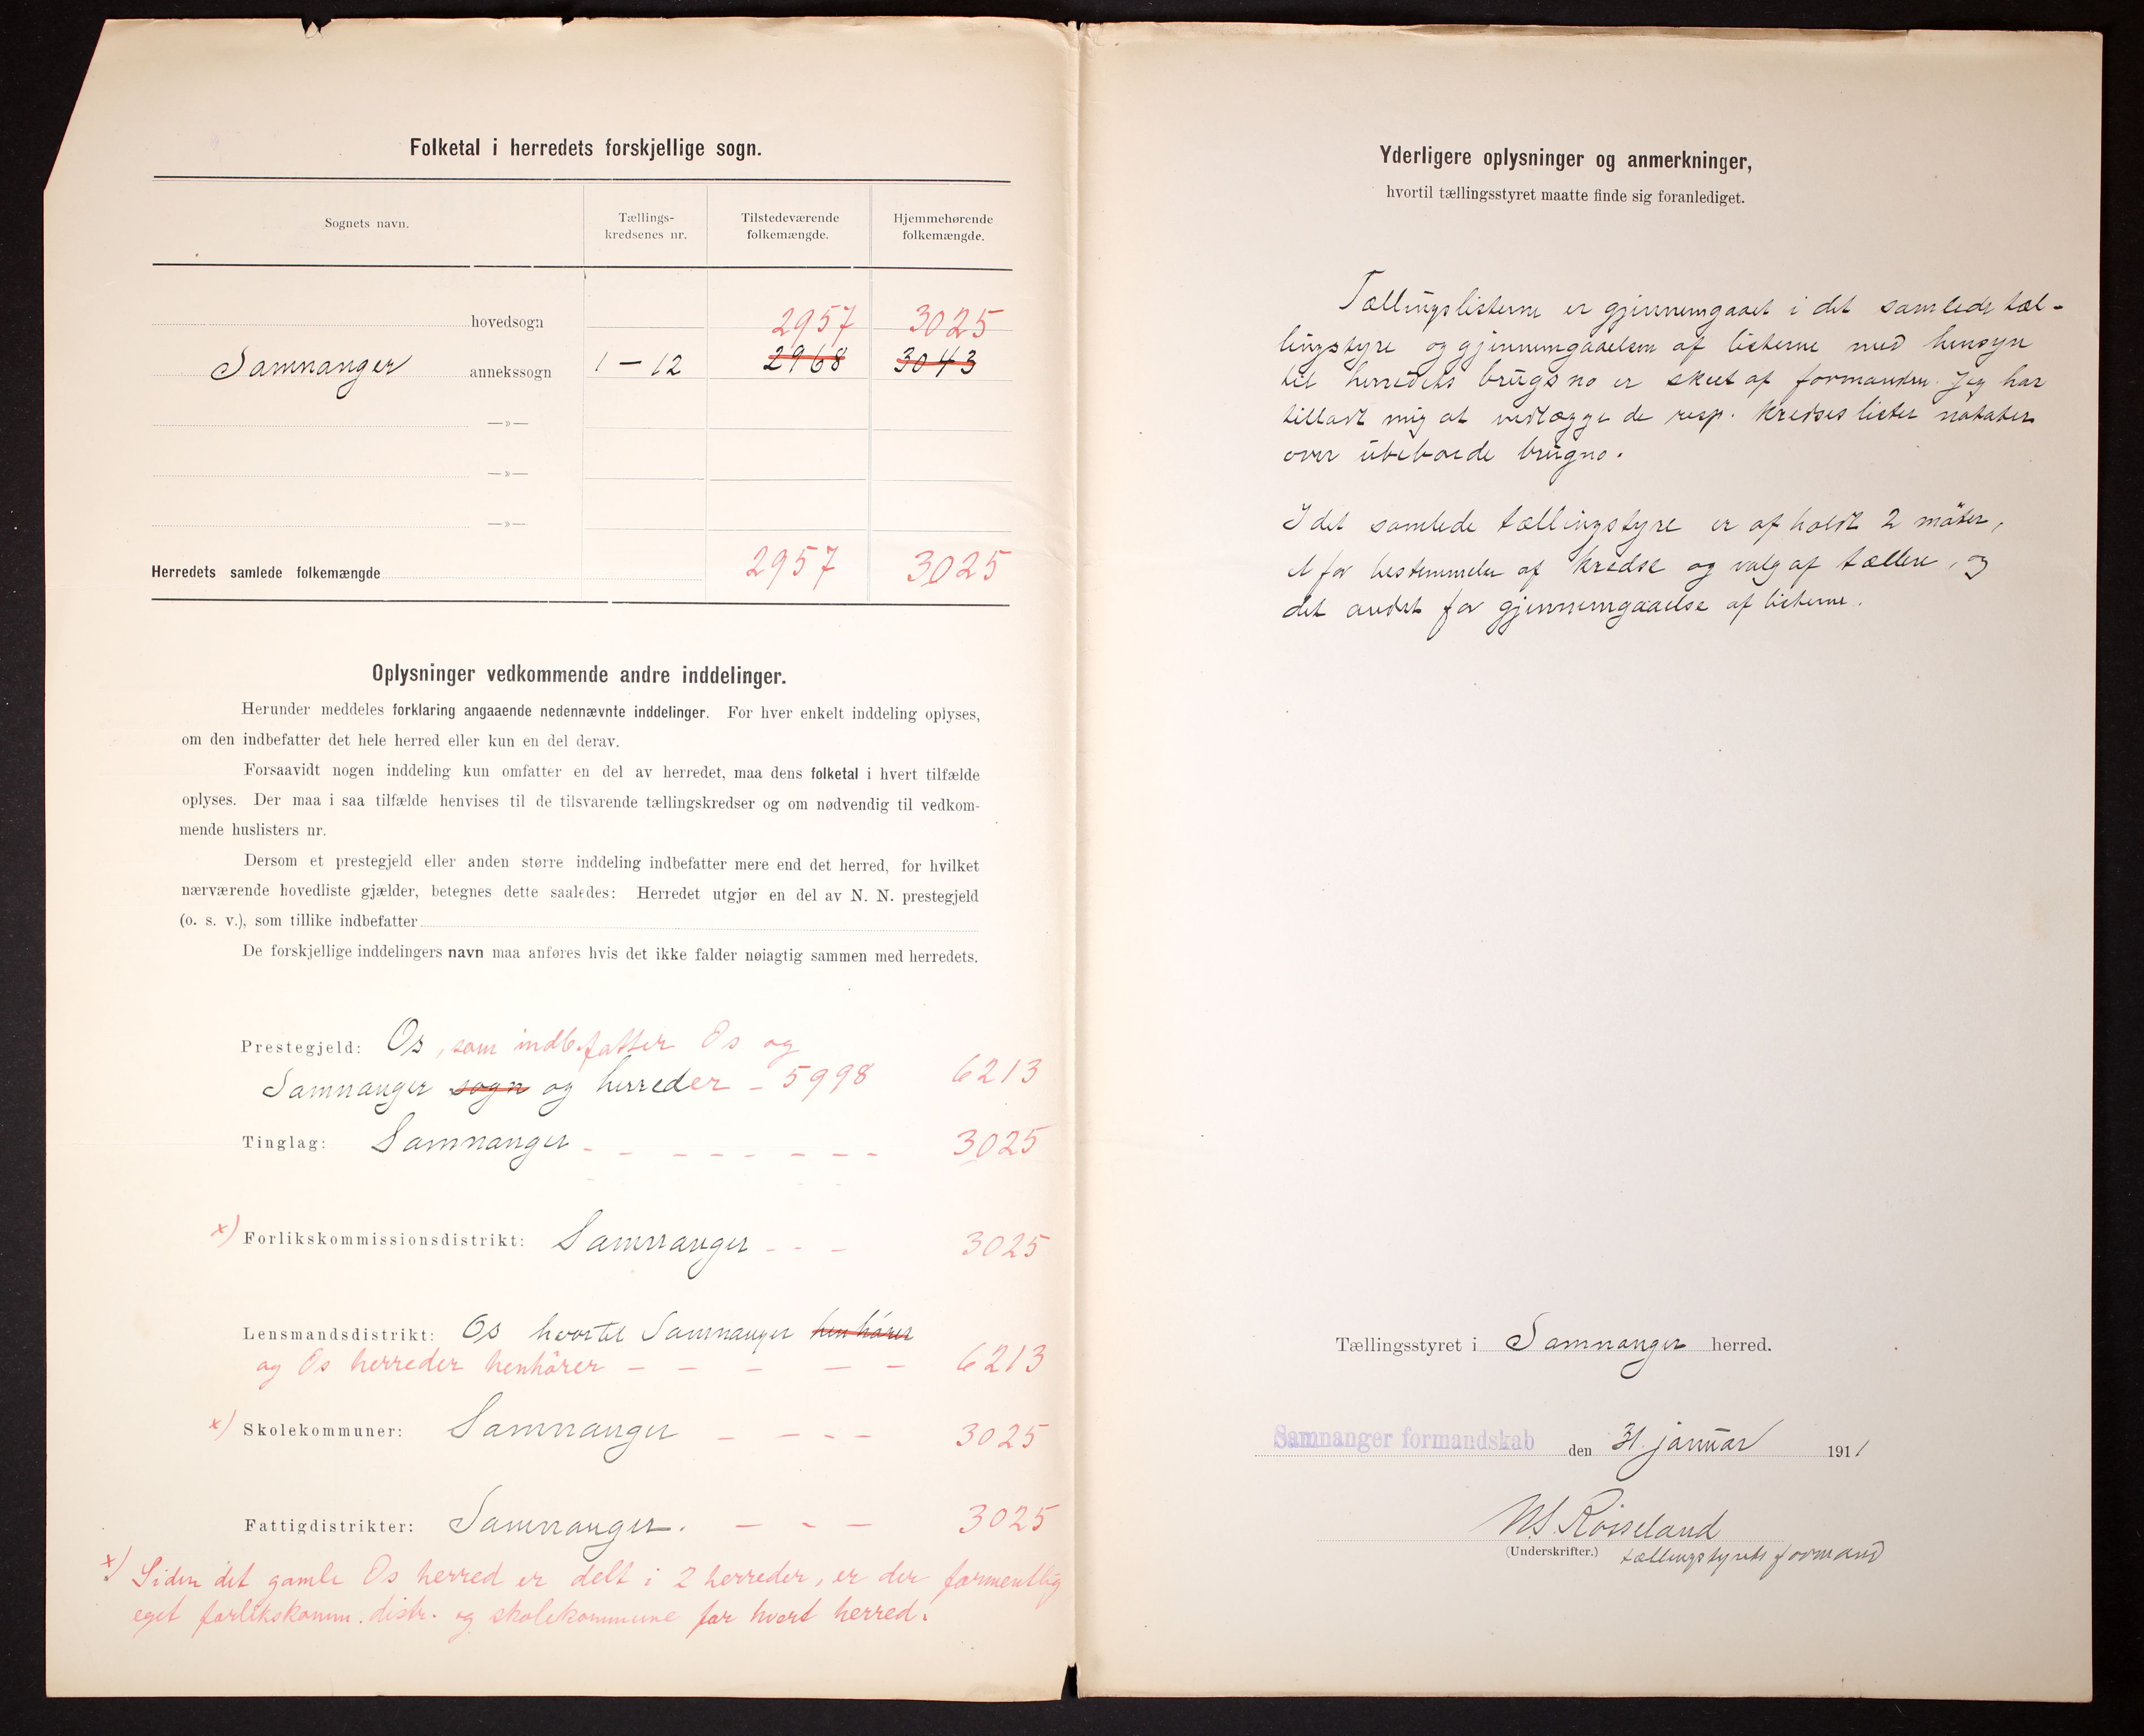 Folketal i herredets forskjellige sogn.
Sognets navn.
Tællings-
kredsenes nr.
Tilstedeværende
folkemængde.
Hjemmehørende
folkemængde.
hovedsogn 2957 3025
Samnanger annekssogn 1 – 12 2968 3043
—»—
—»—
—»—
Herredets samlede folkemængde 2957 3025
Oplysninger vedkommende andre inddelinger.
Herunder meddeles forklaring angaaende nedennævnte inddelinger. For hver enkelt inddeling oplyses,
om den indbefatter det hele herred eller kun en del derav.
Forsaavidt nogen inddeling kun omfatter en del av herredet, maa dens folketal i hvert tilfælde
oplyses. Der maa i saa tilfælde henvises til de tilsvarende tællingskredser og om nødvendig til vedkom-
mende huslisters nr.
Dersom et prestegjeld eller anden større inddeling indbefatter mere end det herred, for hvilket
nærværende hovedliste gjælder, betegnes dette saaledes: Herredet utgjør en del av N. N. prestegjeld
(o. s. v.), som tillike indbefatter
De forskjellige inddelingers navn maa anføres hvis det ikke falder nøiagtig sammen med herredets.
Prestegjeld: Os, som indbefatter Os og
Samnanger sogn og herreder – 5998 6213
Tinglag: Samnanger – – – – – – – – 3025
x) Forlikskommissionsdistrikt: Samnanger – – – 3025
Lensmandsdistrikt: Os hvortil Samnanger henhörer
og Os herreder henhörer – – – – – 6213
x) Skolekommuner: Samnanger – – – – 3025
Fattigdistrikter: Samnanger. – – – 3025
x) Siden det gamle Os herred er delt i 2 herreder, er der formentlig
eget forlikskomm. distr. og skolekommune for hvert herred.
Yderligere oplysninger og anmerkninger,
hvortil tællingsstyret maatte finde sig foranlediget.
Tællingslisterne er gjennemgaaet i det samlede tæl-
lingstyre og gjennemgaaelsen af listerne med hensyn
til herredets brugsno er skeet af formanden. Jeg har
tilladt mig at vedlægge de resp. kredses lister notater
over ubeboede brugno.
I det samlede tællingstyre er afholdt 2 möter,
et for bestemmelse af kredse og valg af tællere, og
det andet for gjennemgaaelse af listerne.
Tællingsstyret i Samnanger herred.
Samnanger formandskab den 31. januar 1911
N.S. Röiseland
(Underskrifter.) tællingstyrets formand